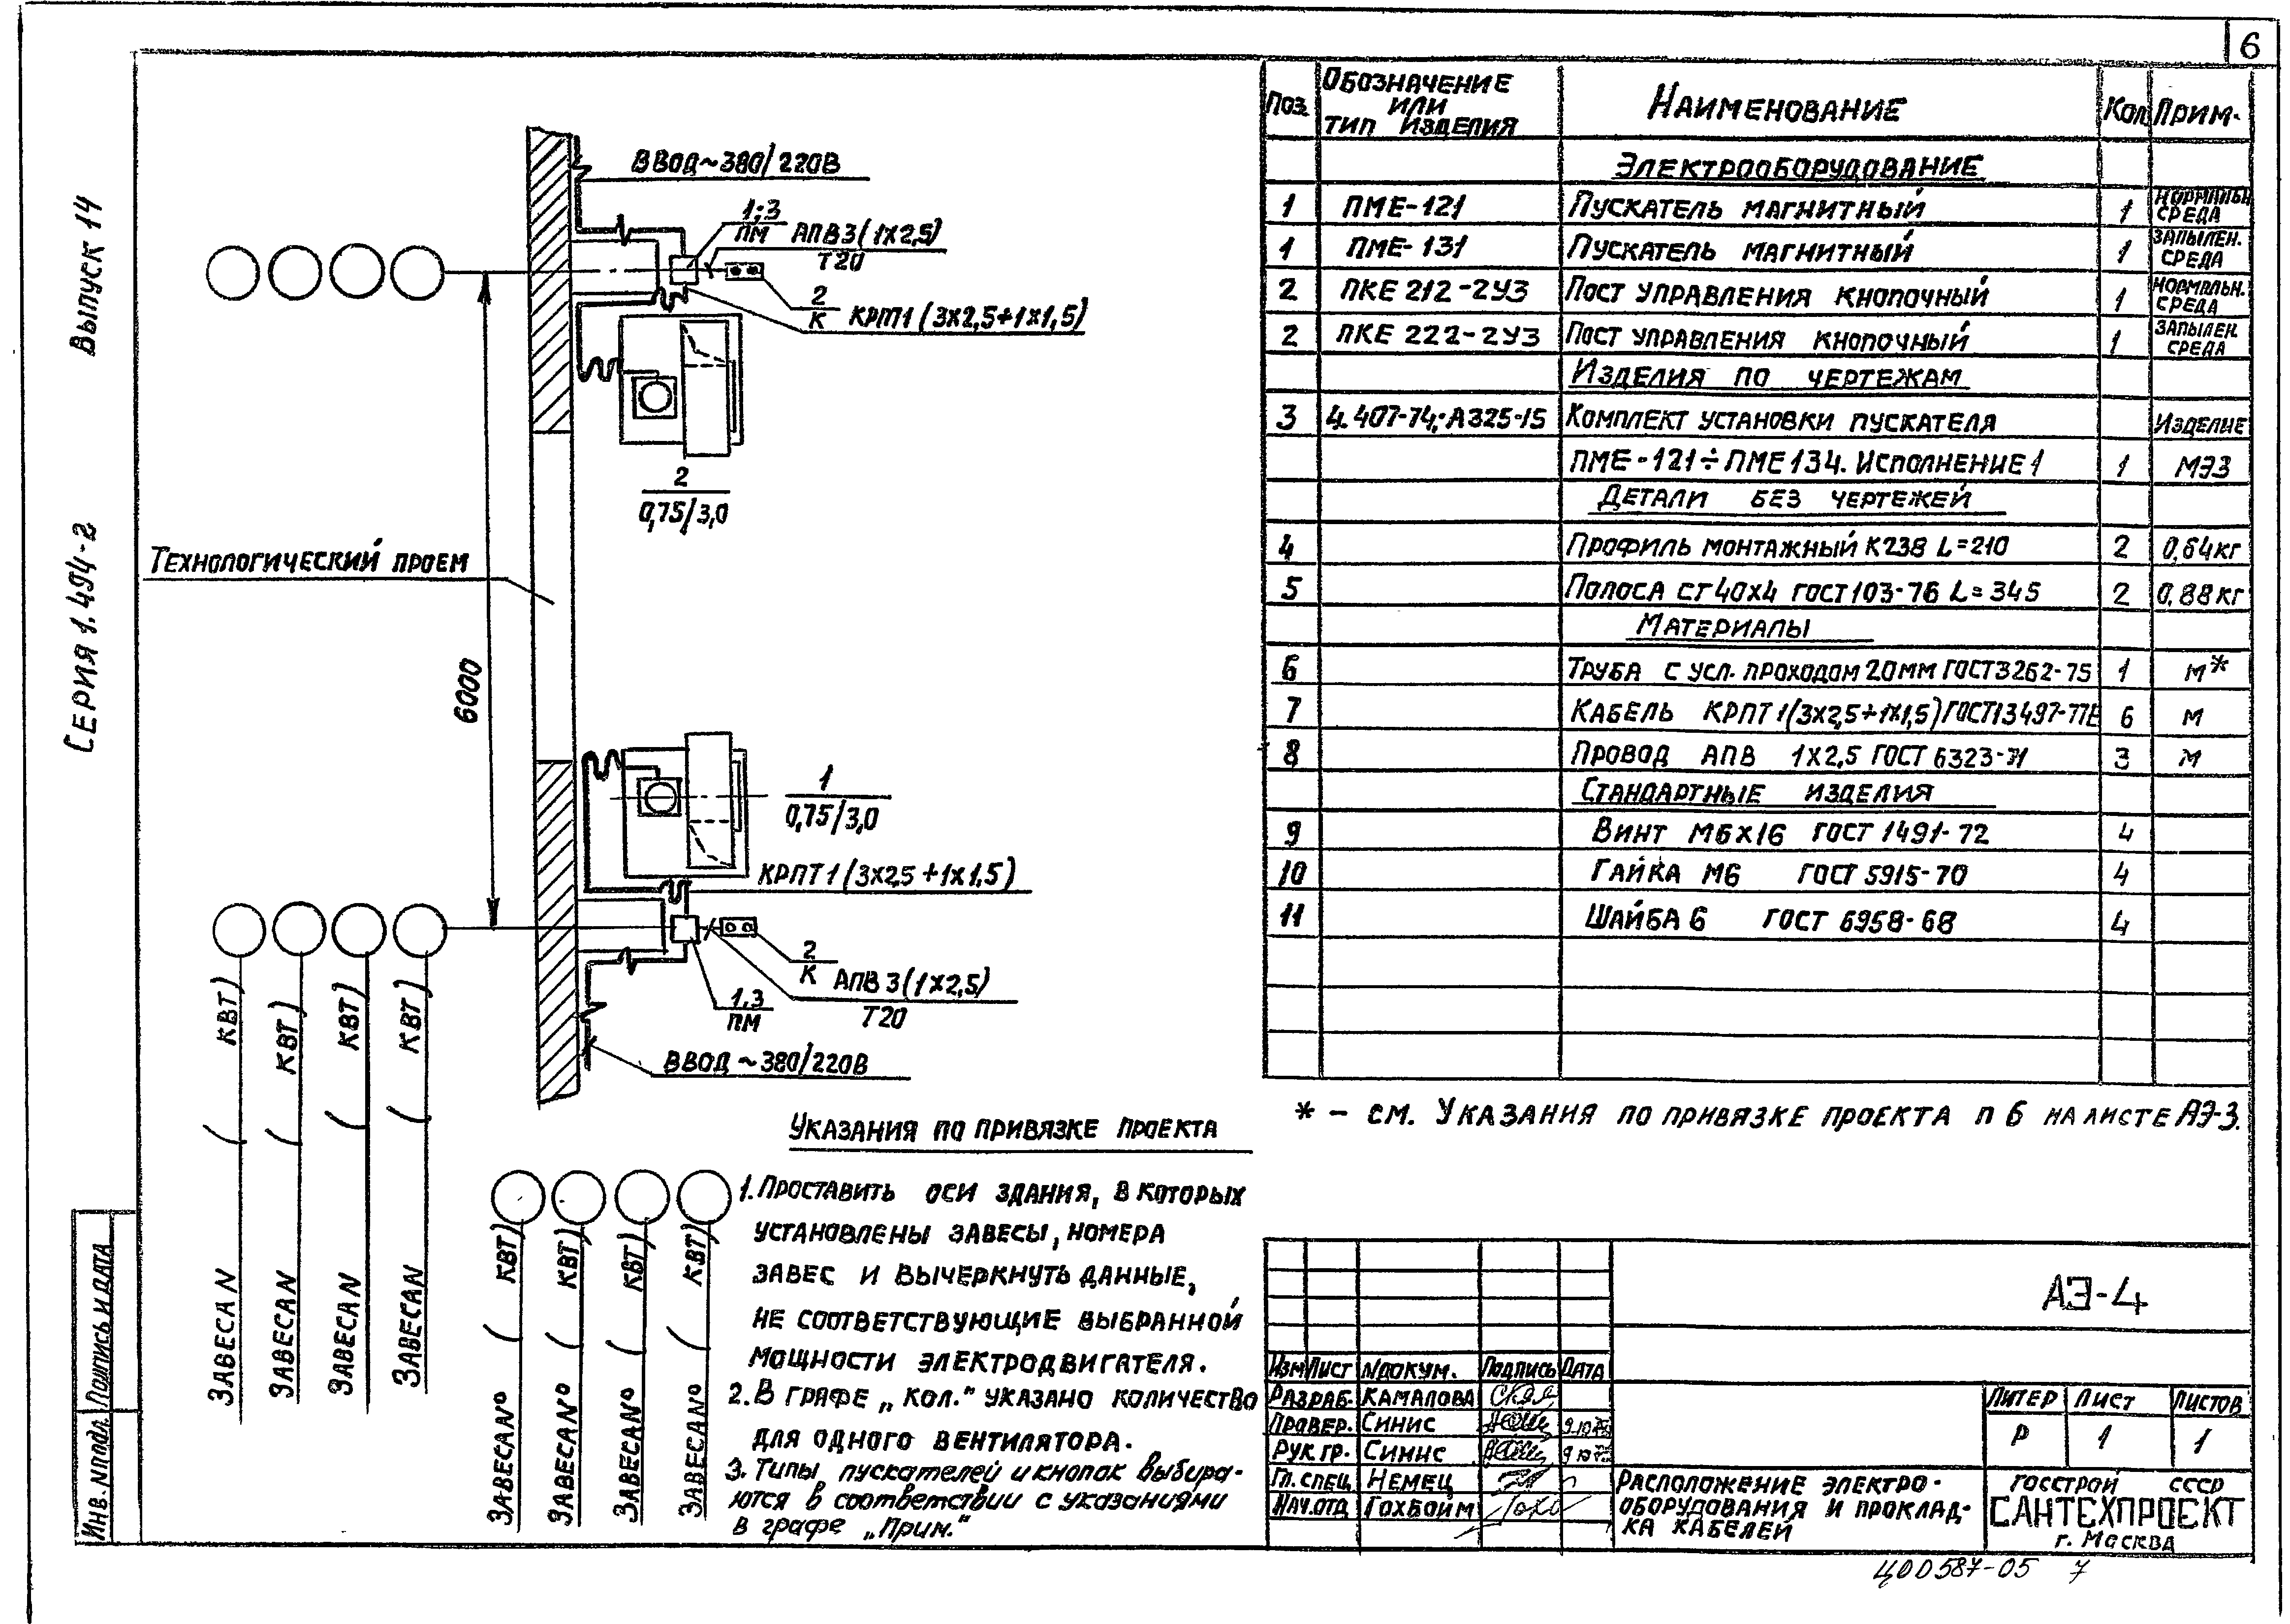 6
Выпуск 14
Серия 1.494-2
ВВОД ~380/220В
1;3
ПМ
АПВ 3(1х2,5)
Т20
2
К
КРПТ1 (3х2,5+1х1,5)
2
0,75/3,0
Технологический проем
6000
1
0,75/3,0
КРПТ1 (3х2,5+1х1,5)
2
К
АПВ 3(1х2,5)
Т20
1,3
ПМ
ВВОД ~380/220В
ЗАВЕСА N ( КВТ)
ЗАВЕСА N ( КВТ)
ЗАВЕСА N ( КВТ)
ЗАВЕСА N ( КВТ)
ЗАВЕСА N° ( КВТ)
ЗАВЕСА N° ( КВТ)
ЗАВЕСА N° ( КВТ)
ЗАВЕСА N° ( КВТ)
Указания по привязке проекта
1. Проставить оси здания, в которых
установлены завесы, номера
завес и вычеркнуть данные,
не соответствующие выбранной
мощности электродвигателя.
2. В графе „Кол." указано количество
для одного вентилятора.
3. Типы пускателей и кнопок выбира-
ются в соответствии с указаниями
в графе „Прим."
Поз. Обозначение или тип изделия Наименование Кол Прим.
Электрооборудование
1 ПМЕ-121 Пускатель магнитный 1 Нормальн. среда
1 ПМЕ-131 Пускатель магнитный 1 Запылен. среда
2 ПКЕ 212-2У3 Пост управления кнопочный 1 Нормальн. среда
2 ПКЕ 222-2У3 Пост управления кнопочный 1 Запылен. среда
Изделия по чертежам
3 4.407-74; А325-15 Комплект установки пускателя Изделие
ПМЕ-121÷ПМЕ134. Исполнение 1 1 МЭЗ
Детали без чертежей
4 Профиль монтажный К238 L=210 2 0,64кг
5 Полоса ст 40х4 ГОСТ 103-76 L=345 2 0,88кг
Материалы
6 Труба с усл. проходом 20мм ГОСТ3262-75 1 м*
7 Кабель КРПТ1(3х2,5+1х1,5) ГОСТ13497-77Е 6 м
8 Провод АПВ 1х2,5 ГОСТ 6323-71 3 м
Стандартные изделия
9 Винт М6х16 ГОСТ 1491-72 4
10 Гайка М6 ГОСТ 5915-70 4
11 Шайба 6 ГОСТ 6958-68 4
* - см. Указания по привязке проекта п 6 на листе АЭ-3.
АЭ-4
Изм Лист N докум. Подпись Дата
Разраб. Камалова
Провер. Синис
Рук.гр. Синис
Гл.спец. Немец
Нач.отд Гохбойм
Расположение электро-
оборудования и проклад-
ка кабелей
Литер Лист Листов
Р 1 1
Госстрой СССР
САНТЕХПРОЕКТ
г. Москва
Инв. N подл. Подпись и дата
Ц00587-05 7